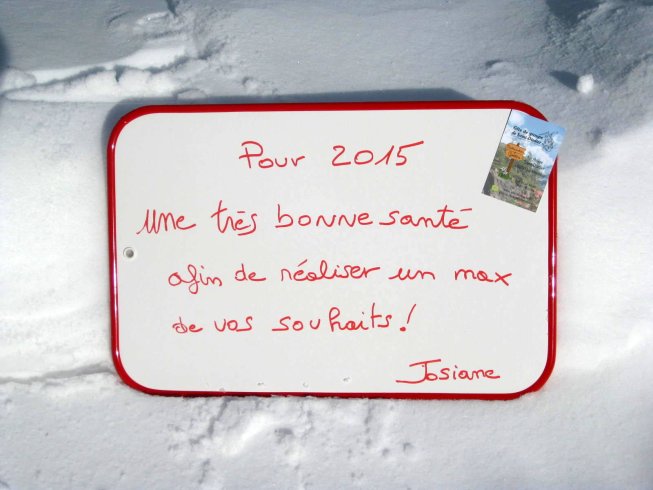 Pour 2015
Une très bonne santé
afin de réaliser un max
de vos souhaits !
Josiane